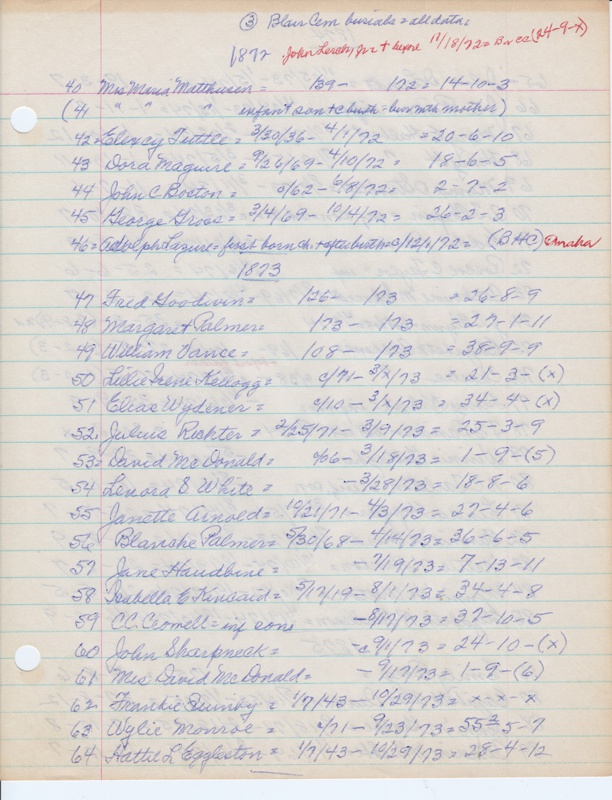 ③ Blair Cem burials = all data =
1872 John Lerch, Jr = + before 12/18/72 = B v CS (24-9-x)
40 Mrs Maria Matthiesen = /39 - /72 = 14-10-3
(41 " " " infant son + c birth - bur with mother)
42 = Elexcy Tuttle = 3/30/36 - 4/1/72 = 20-6-10
43 Dora Maguire = 9/26/69 - 4/10/72 = 18-6-5
44 John C Boston = c/62 - 6/8/72 = 2-7-2
45 George Gross = 3/4/69 - 10/4/72 = 26-2-3
46 = Adolph Lazure = first born ch. + after birth = c/12/1/72 = (BHC) Omaha
1873
47 Fred Goodwin = /26 - /73 = 26-8-9
48 Margaret Palmer = /73 - /73 = 27-1-11
49 William Vance = /08 - /73 = 38-9-9
50 Lillie Irene Kellogg = c/71 - 3/x/73 = 21-3-(x)
51 Elias Wydener = c/10 - 3/x/73 = 34-4-(x)
52 Julius Richter = 2/25/71 - 3/9/73 = 25-3-9
53 = David McDonald = c/06 - 3/18/73 = 1-9-(5)
54 Lenora S White = - 3/28/73 = 18-8-6
55 Janette Arnold = 10/21/71 - 4/3/73 = 27-4-6
56 Blanche Palmer = 5/30/68 - 4/14/73 = 36-6-5
57 Jane Haudbine = - 7/19/73 = 7-13-11
58 Isabella E Kincaid = 5/17/19 - 8/1/73 = 34-4-8
59 CC Crowell = inf son = - 8/17/73 = 37-10-5
60 John Sharpneck = - c 9/1/73 = 24-10-(x)
61 Mrs David McDonald = - 9/17/73 = 1-9-(6)
62 Frankie Quimby = 1/7/43 - 10/29/73 = x-x-x
63 Wylie Monroe = c/71 - 9/23/73 = 55 2/ 5-7
64 Hattie L Eggleston = 1/7/43 - 10/29/73 = 28-4-12